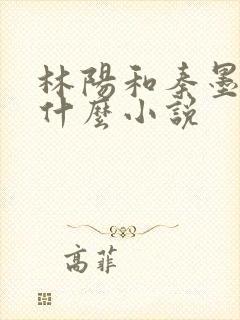 林陽和秦墨
什麼小說
高菲